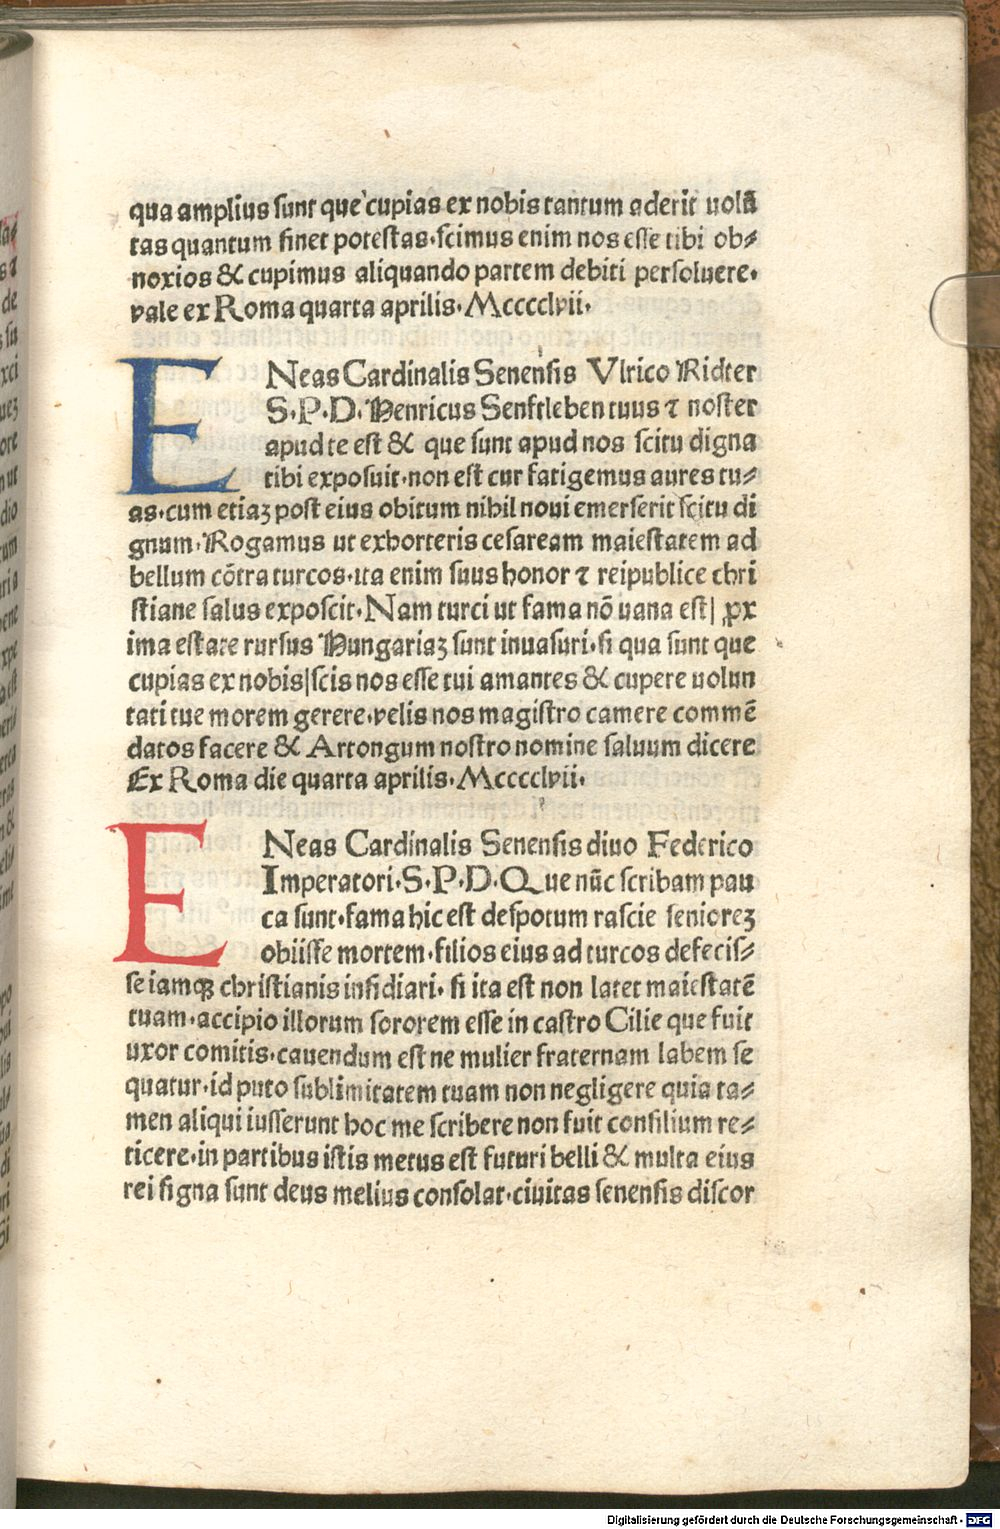 qua amplius sunt que cupias ex nobis tantum aderit uolū
tas quantum sinet potestas·scimus enim nos esse tibi ob⸗
noxios & cupimus aliquando partem debiti persoluere·
vale ex Roma quarta aprilis·Mcccclvii·
ENeas Cardinalis Senensis Vlrico Ridter
S·P·D·Henricus Senftleben tuus ⁊ noster
apud te est & que sunt apud nos scitu digna
tibi exposuit·non est cur fatigemus aures tu⸗
as·cum etiaꝫ post eius obitum nihil noui emerserit scitu di
gnum·Rogamus ut exhorteris cesaream maiestatem ad
bellum cōtra turcos·ita enim suus honor ⁊ reipublice chri
stiane salus exposcit·Nam turci ut fama nō uana est| ꝓx
ima estate rursus Hungariaꝫ sunt inuasuri·si qua sunt que
cupias ex nobis|scis nos esse tui amantes & cupere uolun
tati tue morem gerere·velis nos magistro camere commē
datos facere & Artongum nostro nomine saluum dicere
Ex Roma die quarta aprilis·Mcccclvii·
ENeas Cardinalis Senensis diuo Federico
Imperatori·S·P·D·Que nūc scribam pau
ca sunt·fama hic est despotum rascie senioreꝫ
obiisse mortem·filios eius ad turcos defecis⸗
se iamqꝫ christianis insidiari· si ita est non latet maiestatē
tuam·accipio illorum sororem esse in castro Cilie que fuit
uxor comitis·cauendum est ne mulier fraternam labem se
quatur·id puto sublimitatem tuam non negligere quia ta⸗
men aliqui iusserunt hoc me scribere non fuit consilium re⸗
ticere·in partibus istis metus est futuri belli & multa eius
rei signa sunt deus melius consolat·ciuitas senensis discor
Digitalisierung gefördert durch die Deutsche Forschungsgemeinschaft - DFG